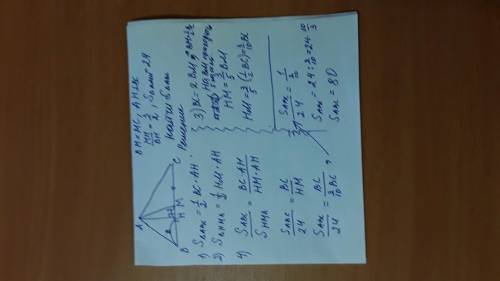 BM = MC, AH ⊥ BC
MH/BH = 3/2, S AHM = 24
Найти S ABC
Решение
A
B H M C
1) S ABC = 1/2 BC · AH
2) S AHM = 1/2 HM · AH
3) BC = 2 BM
HM = 3/5 BM
HM = 3/5 (1/2 BC) = 3/10 BC
4) S ABC / S HMA = BC · AH / HM · AH
S ABC / 24 = BC / HM
S ABC / 24 = BC / 3/10 BC
S ABC / 24 = 1 / 3/10
S ABC = 24 : 3/10 = 24 · 10/3
S ABC = 80